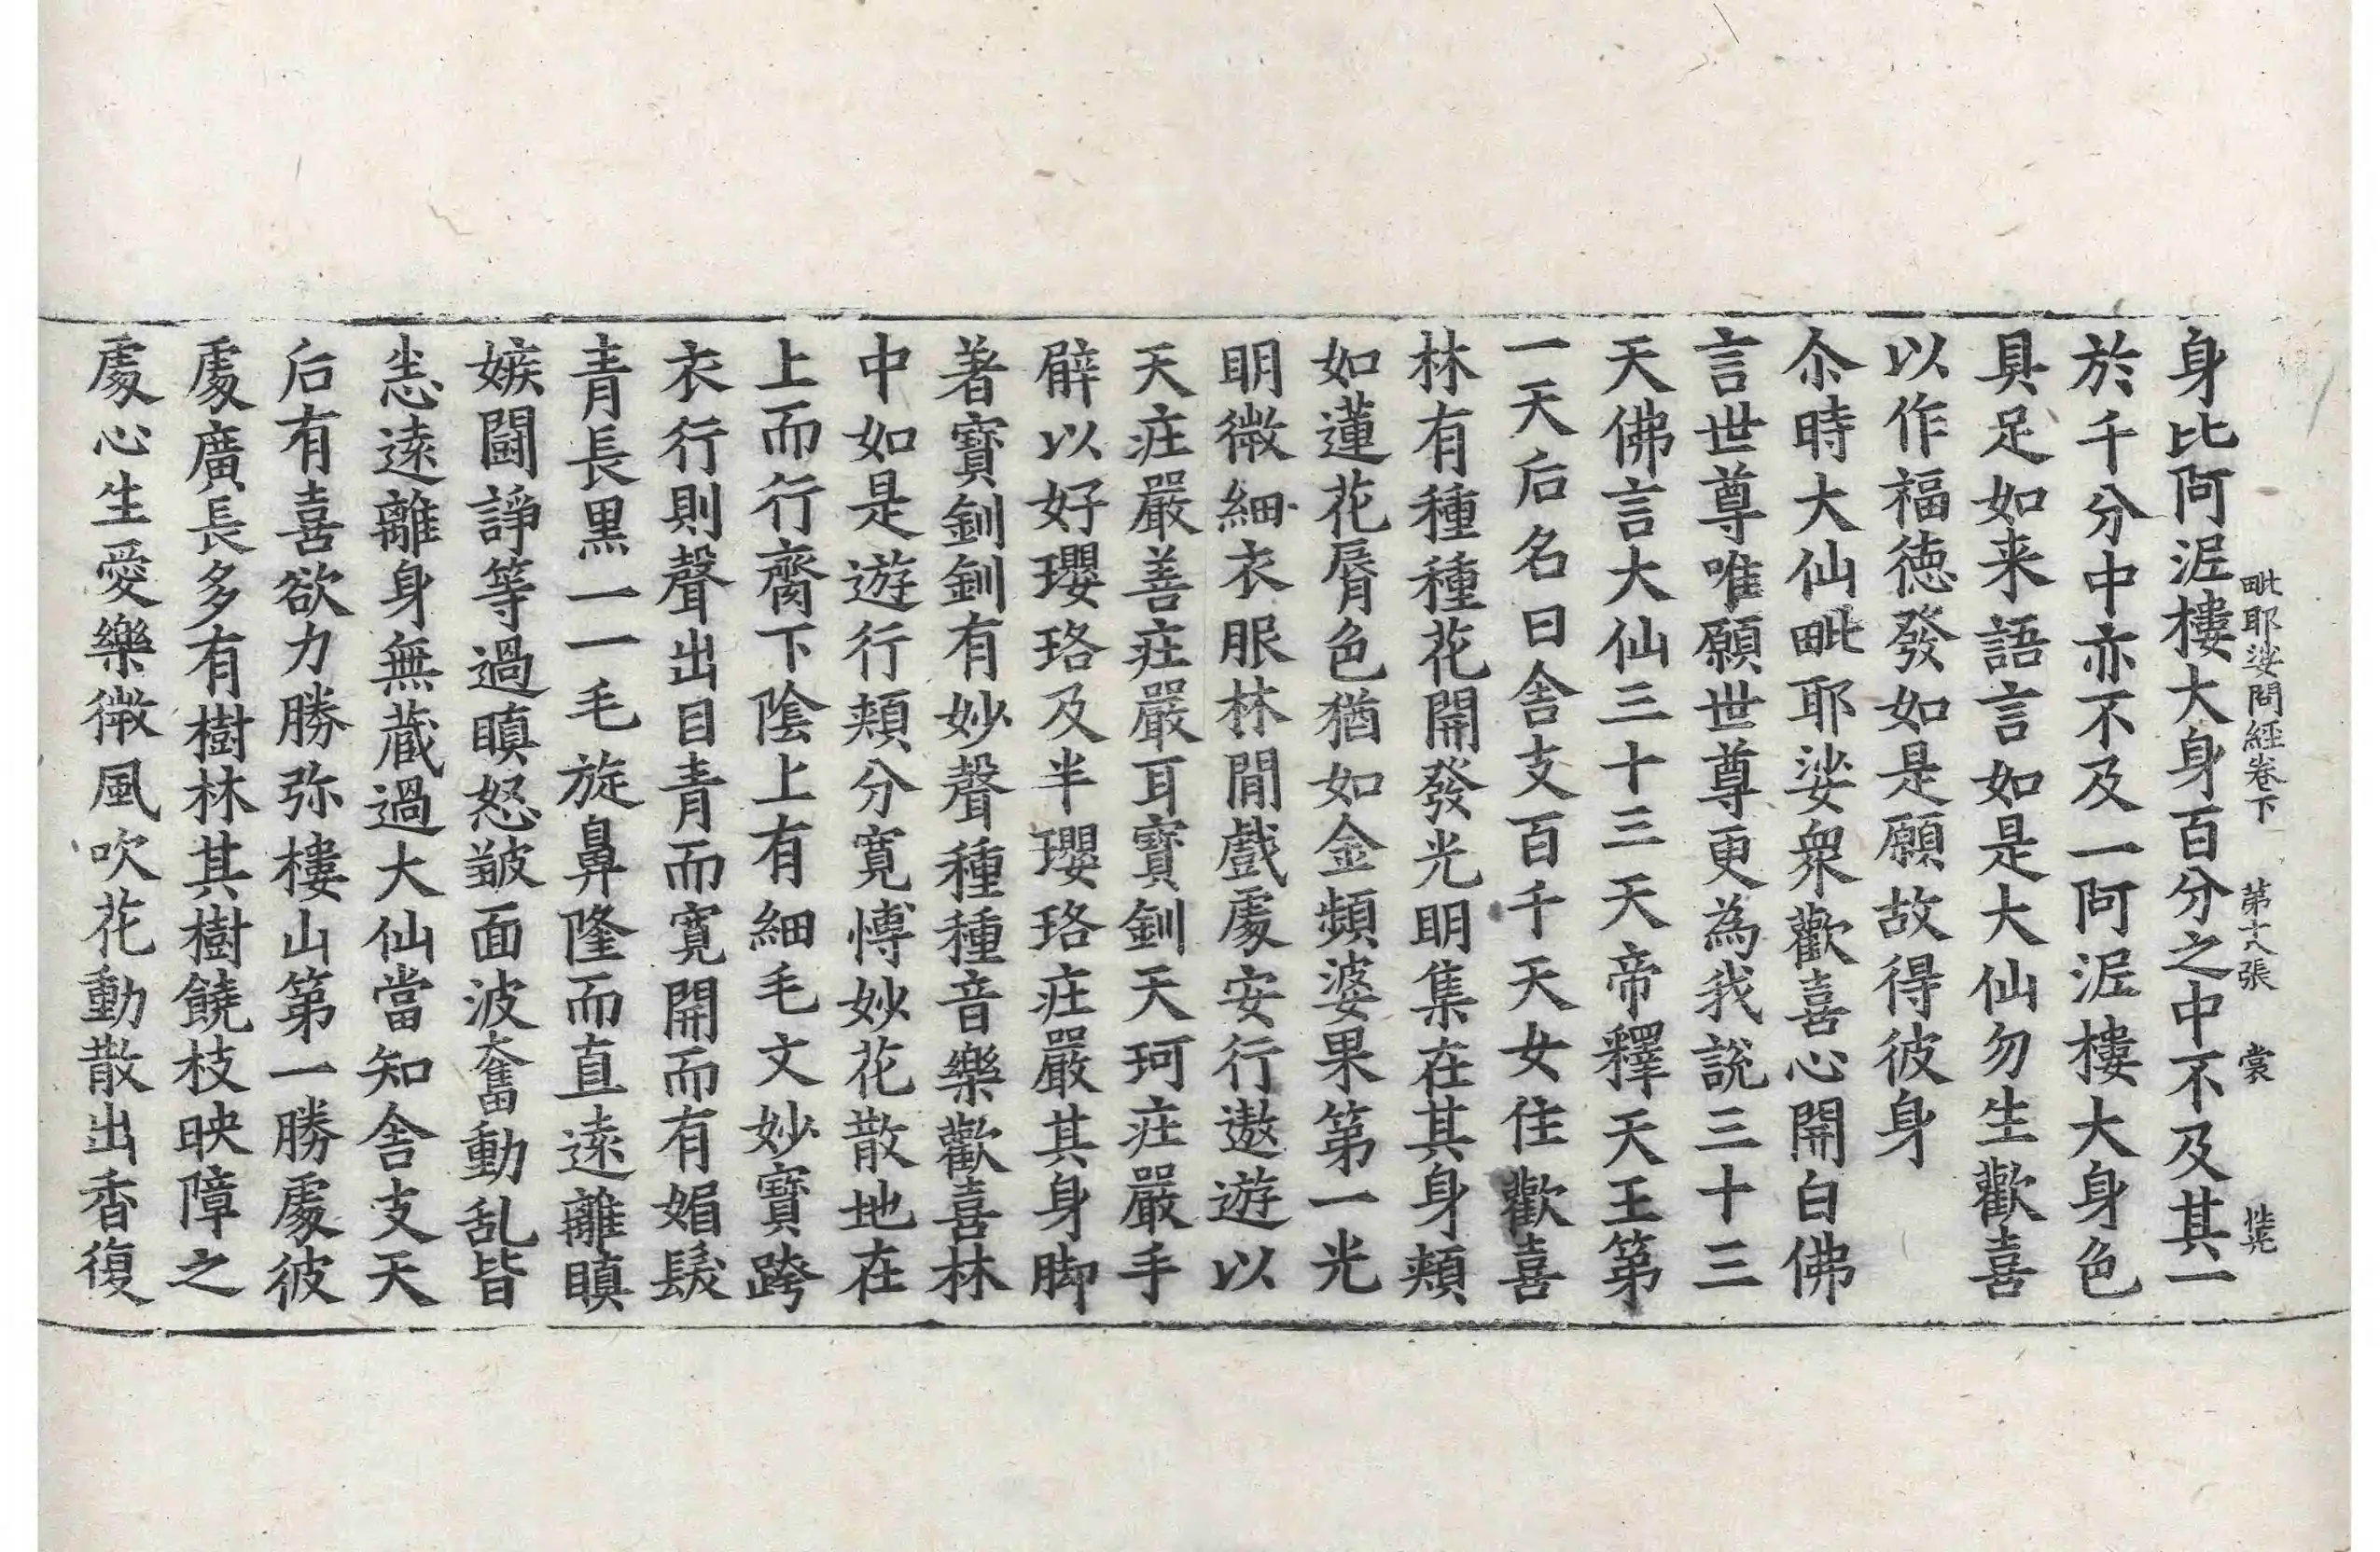 毗耶娑問經卷下　第十八張　裳
身比阿泥樓大身百分之中不及其一
於千分中亦不及一阿泥樓大身色
具足如来語言如是大仙勿生歡喜
以作福德發如是願故得彼身
尒時大仙毗耶娑衆歡喜心開白佛
言世尊唯願世尊更為我說三十三
天佛言大仙三十三天帝釋天王第
一天后名曰舍支百千天女住歡喜
林有種種花開發光明集在其身頰
如蓮花脣色猶如金頻婆果第一光
明微細衣服林間戲處安行遨遊以
天莊嚴善莊嚴耳寶釧天珂莊嚴手
臂以好瓔珞及半瓔珞莊嚴其身脚
著寶釧釧有妙聲種種音樂歡喜林
中如是遊行頰分寬愽妙花散地在
上而行齊下陰上有細毛文妙寶跨
衣行則聲出目青而寬開而有媚髮
青長黑一一毛旋鼻隆而直遠離瞋
嫉鬪諍等過瞋怒皺面波奮動乱皆
悉遠離身無蔵過大仙當知舍支天
后有喜欲力勝弥樓山第一勝處彼
處廣長多有樹林其樹饒枝映障之
處心生愛樂微風吹花動散出香復